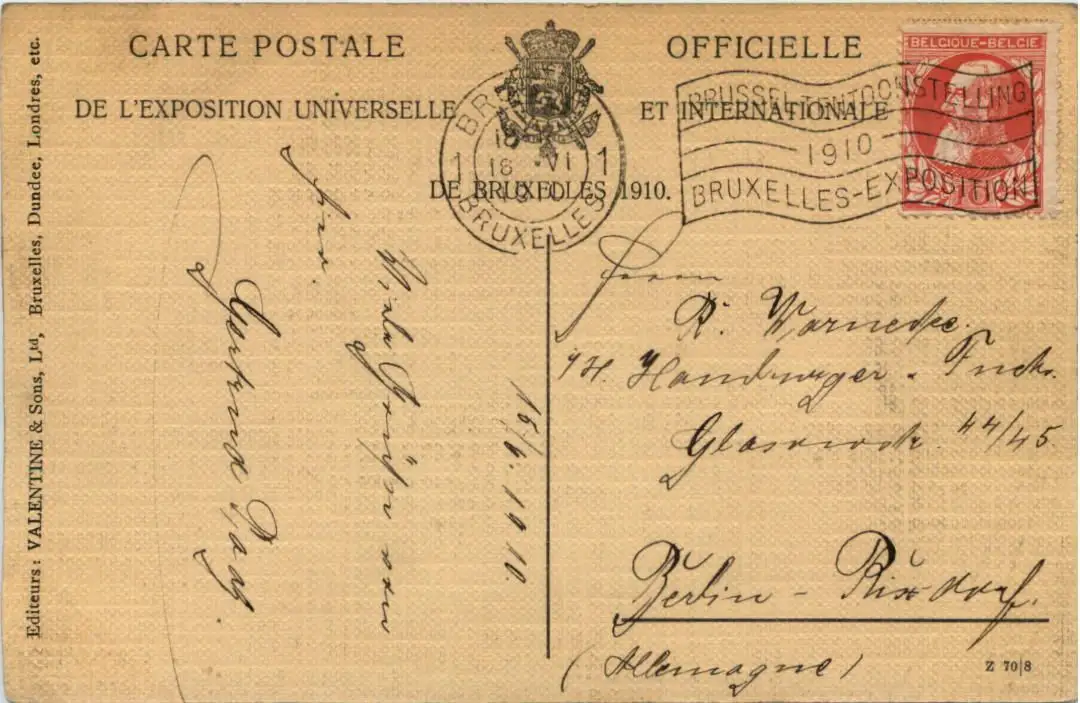 CARTE POSTALE OFFICIELLE
DE L'EXPOSITION UNIVERSELLE ET INTERNATIONALE
DE BRUXELLES 1910.
BELGIQUE-BELGIË
10
BRUSSEL-TENTOONSTELLING
1910
BRUXELLES-EXPOSITION
1 18 VI 1
1910
BRUXELLES
Editeurs: VALENTINE & Sons, Ltd, Bruxelles, Dundee, Londres, etc.
15/6.1910.
Viele Grüße von
hier.
Gertrud
Herrn
R. Warnecke.
Fuchs.
44/45
Berlin - Rixdorf.
(Allemagne)
Z 70|8